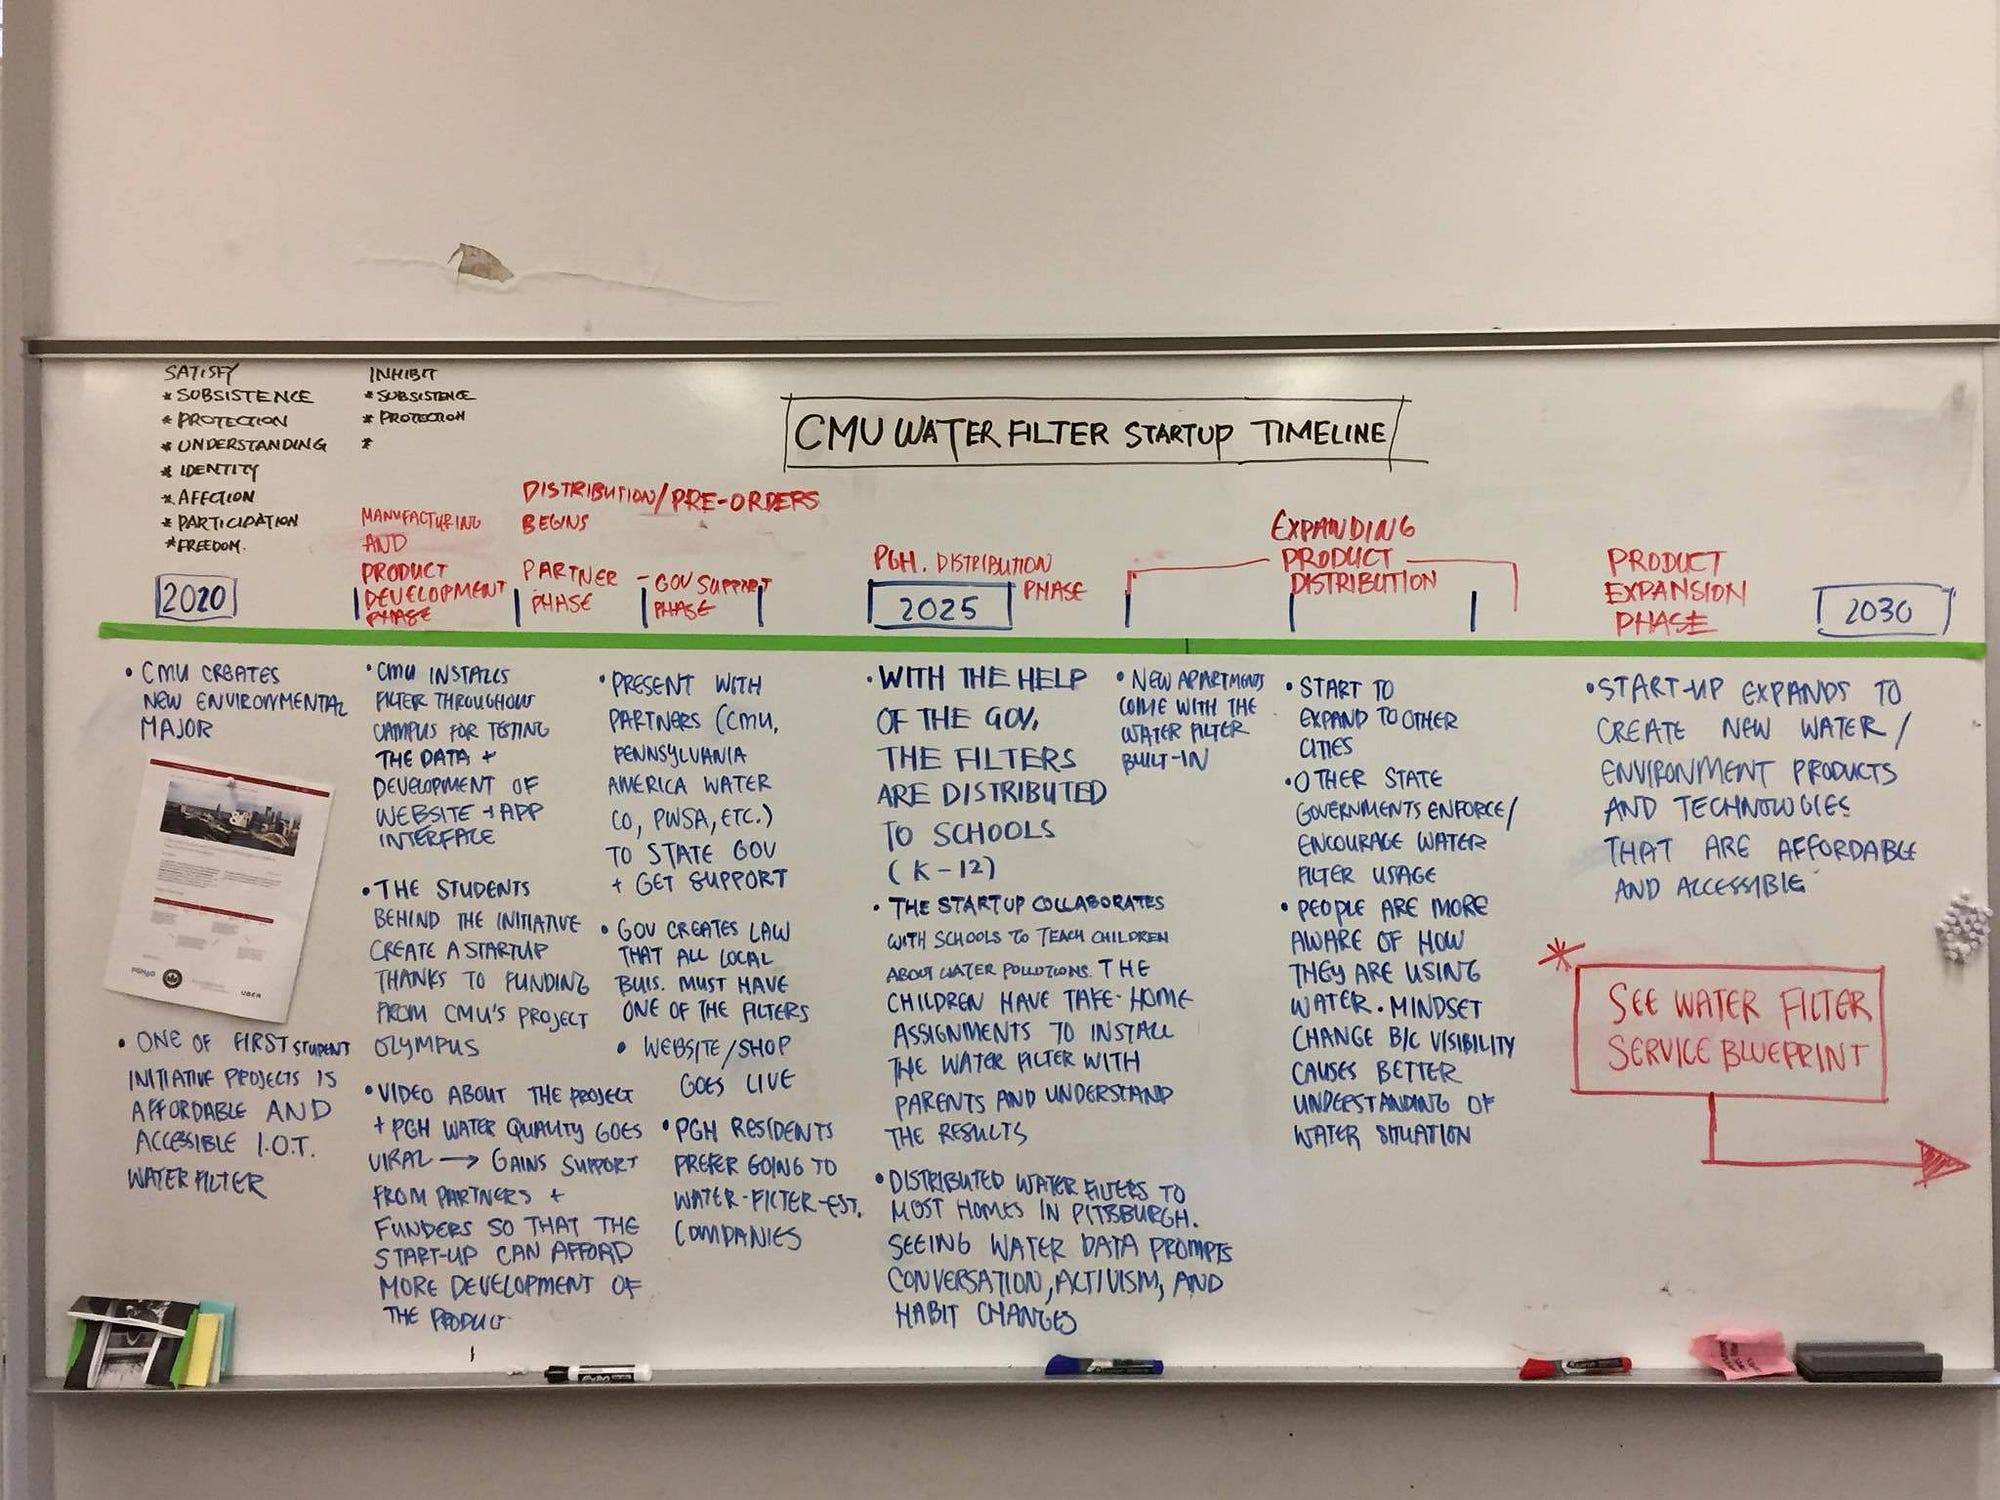 SATISFY
* SUBSISTENCE
* PROTECTION
* UNDERSTANDING
* IDENTITY
* AFFECTION
* PARTICIPATION
* FREEDOM.
INHIBIT
* SUBSISTENCE
* PROTECTION
*
CMU WATER FILTER STARTUP TIMELINE
2020
MANUFACTURING
AND
PRODUCT
DEVELOPMENT
PHASE
DISTRIBUTION/PRE-ORDERS
BEGINS
PARTNER
PHASE
- GOV SUPPORT
PHASE
PGH. DISTRIBUTION
PHASE
2025
EXPANDING
PRODUCT
DISTRIBUTION
PRODUCT
EXPANSION
PHASE
2030
• CMU CREATES
NEW ENVIRONMENTAL
MAJOR
PGH2O
UBER
• ONE OF FIRST STUDENT
INITIATIVE PROJECTS IS
AFFORDABLE AND
ACCESSIBLE I.O.T.
WATER FILTER
• CMU INSTALLS
FILTER THROUGHOUT
CAMPUS FOR TESTING
THE DATA +
DEVELOPMENT OF
WEBSITE + APP
INTERFACE
• THE STUDENTS
BEHIND THE INITIATIVE
CREATE A STARTUP
THANKS TO FUNDING
FROM CMU'S PROJECT
OLYMPUS
• VIDEO ABOUT THE PROJECT
+ PGH WATER QUALITY GOES
VIRAL → GAINS SUPPORT
FROM PARTNERS +
FUNDERS SO THAT THE
START-UP CAN AFFORD
MORE DEVELOPMENT OF
THE PRODUCT
• PRESENT WITH
PARTNERS (CMU,
PENNSYLVANIA
AMERICA WATER
CO, PWSA, ETC.)
TO STATE GOV
+ GET SUPPORT
• GOV CREATES LAW
THAT ALL LOCAL
BUIS. MUST HAVE
ONE OF THE FILTERS
• WEBSITE/SHOP
GOES LIVE
• PGH RESIDENTS
PREFER GOING TO
WATER-FILTER-EST.
COMPANIES
• WITH THE HELP
OF THE GOV,
THE FILTERS
ARE DISTRIBUTED
TO SCHOOLS
(K-12)
• THE STARTUP COLLABORATES
WITH SCHOOLS TO TEACH CHILDREN
ABOUT WATER POLLUTIONS. THE
CHILDREN HAVE TAKE-HOME
ASSIGNMENTS TO INSTALL
THE WATER FILTER WITH
PARENTS AND UNDERSTAND
THE RESULTS
• DISTRIBUTED WATER FILTERS TO
MOST HOMES IN PITTSBURGH.
SEEING WATER DATA PROMPTS
CONVERSATION, ACTIVISM, AND
HABIT CHANGES
• NEW APARTMENTS
COME WITH THE
WATER FILTER
BUILT-IN
• START TO
EXPAND TO OTHER
CITIES
• OTHER STATE
GOVERNMENTS ENFORCE/
ENCOURAGE WATER
FILTER USAGE
• PEOPLE ARE MORE
AWARE OF HOW
THEY ARE USING
WATER. MINDSET
CHANGE B/C VISIBILITY
CAUSES BETTER
UNDERSTANDING OF
WATER SITUATION
• START-UP EXPANDS TO
CREATE NEW WATER/
ENVIRONMENT PRODUCTS
AND TECHNOLOGIES
THAT ARE AFFORDABLE
AND ACCESSIBLE
* SEE WATER FILTER
SERVICE BLUEPRINT
EXPO